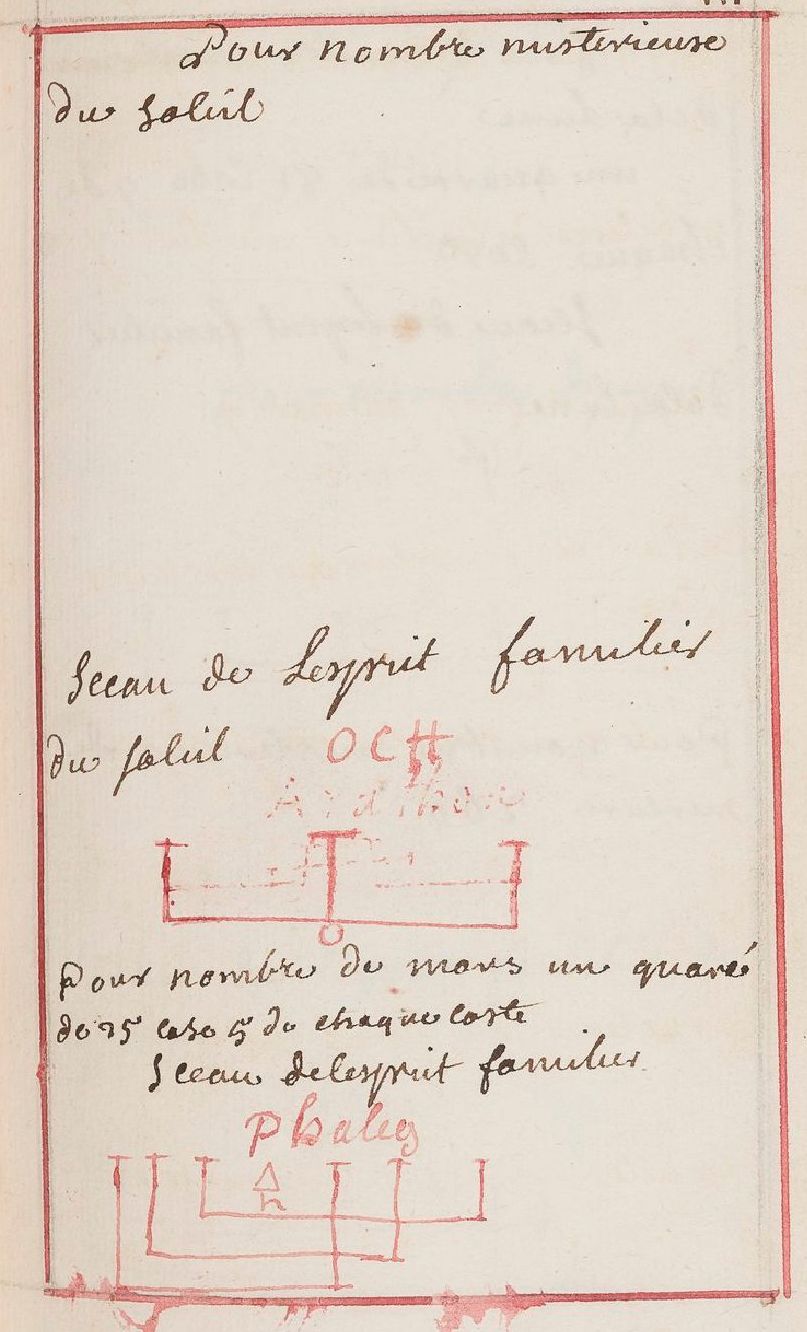 Pour nombre misterieuse
du soleil
Sceau de Lesprit familier
du soleil OCH
Arathon
Pour nombre de mars un quaré
de 25 case 5 de chaque coste
Sceau de lesprit familier
Phaleg